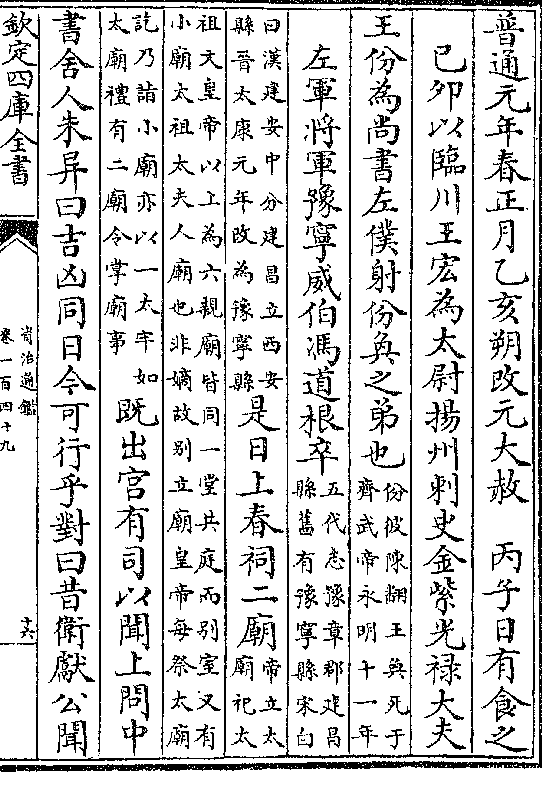 普通元年春正月乙亥朔改元大赦　丙子日有食之
己卯以臨川王宏為太尉揚州刺史金紫光禄大夫
王份為尚書左僕射份奐之弟也
份彼陳翻王奐死于
齊武帝永明十一年
左軍將軍豫寧威伯馮道根卒
五代志豫章郡建昌
縣舊有豫寧縣宋白
曰漢建安中分建昌立西安
縣晉太康元年改為豫寧縣
是日上春祠二廟
帝立太
廟祀太
祖文皇帝以上為六親廟皆同一堂共庭而别室又有
小廟太祖太夫人廟也非嫡故别立廟皇帝每祭太廟
訖乃詣小廟亦以一太牢如
太廟禮有二廟令掌廟事
既出宫有司以聞上問中
書舍人朱异曰吉凶同日今可行乎對曰昔衛獻公聞
欽定四庫全書
資治通鑑
卷一百四十九
十六